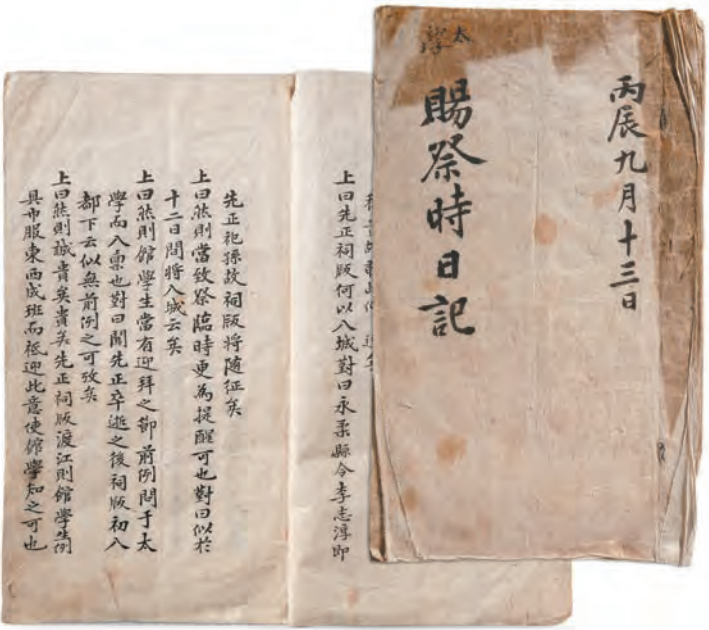 丙辰九月十三日
賜祭時日記
太學
上曰先正祠版何以入城對曰永柔縣令李志淳即
先正祀孫故祠版將隨征矣
上曰然則當致祭臨時更為提醒可也對曰似於
十二日間將入城云矣
上曰然則館學生當有迎拜之節前例問于太
學而入稟也對曰聞先正卒逝之後祠版初入
都下云似無前例之可攷矣
上曰然則誠貴矣貴矣先正祠版渡江則館學生例
具巾服東西成班而祗迎此意使館學知之可也